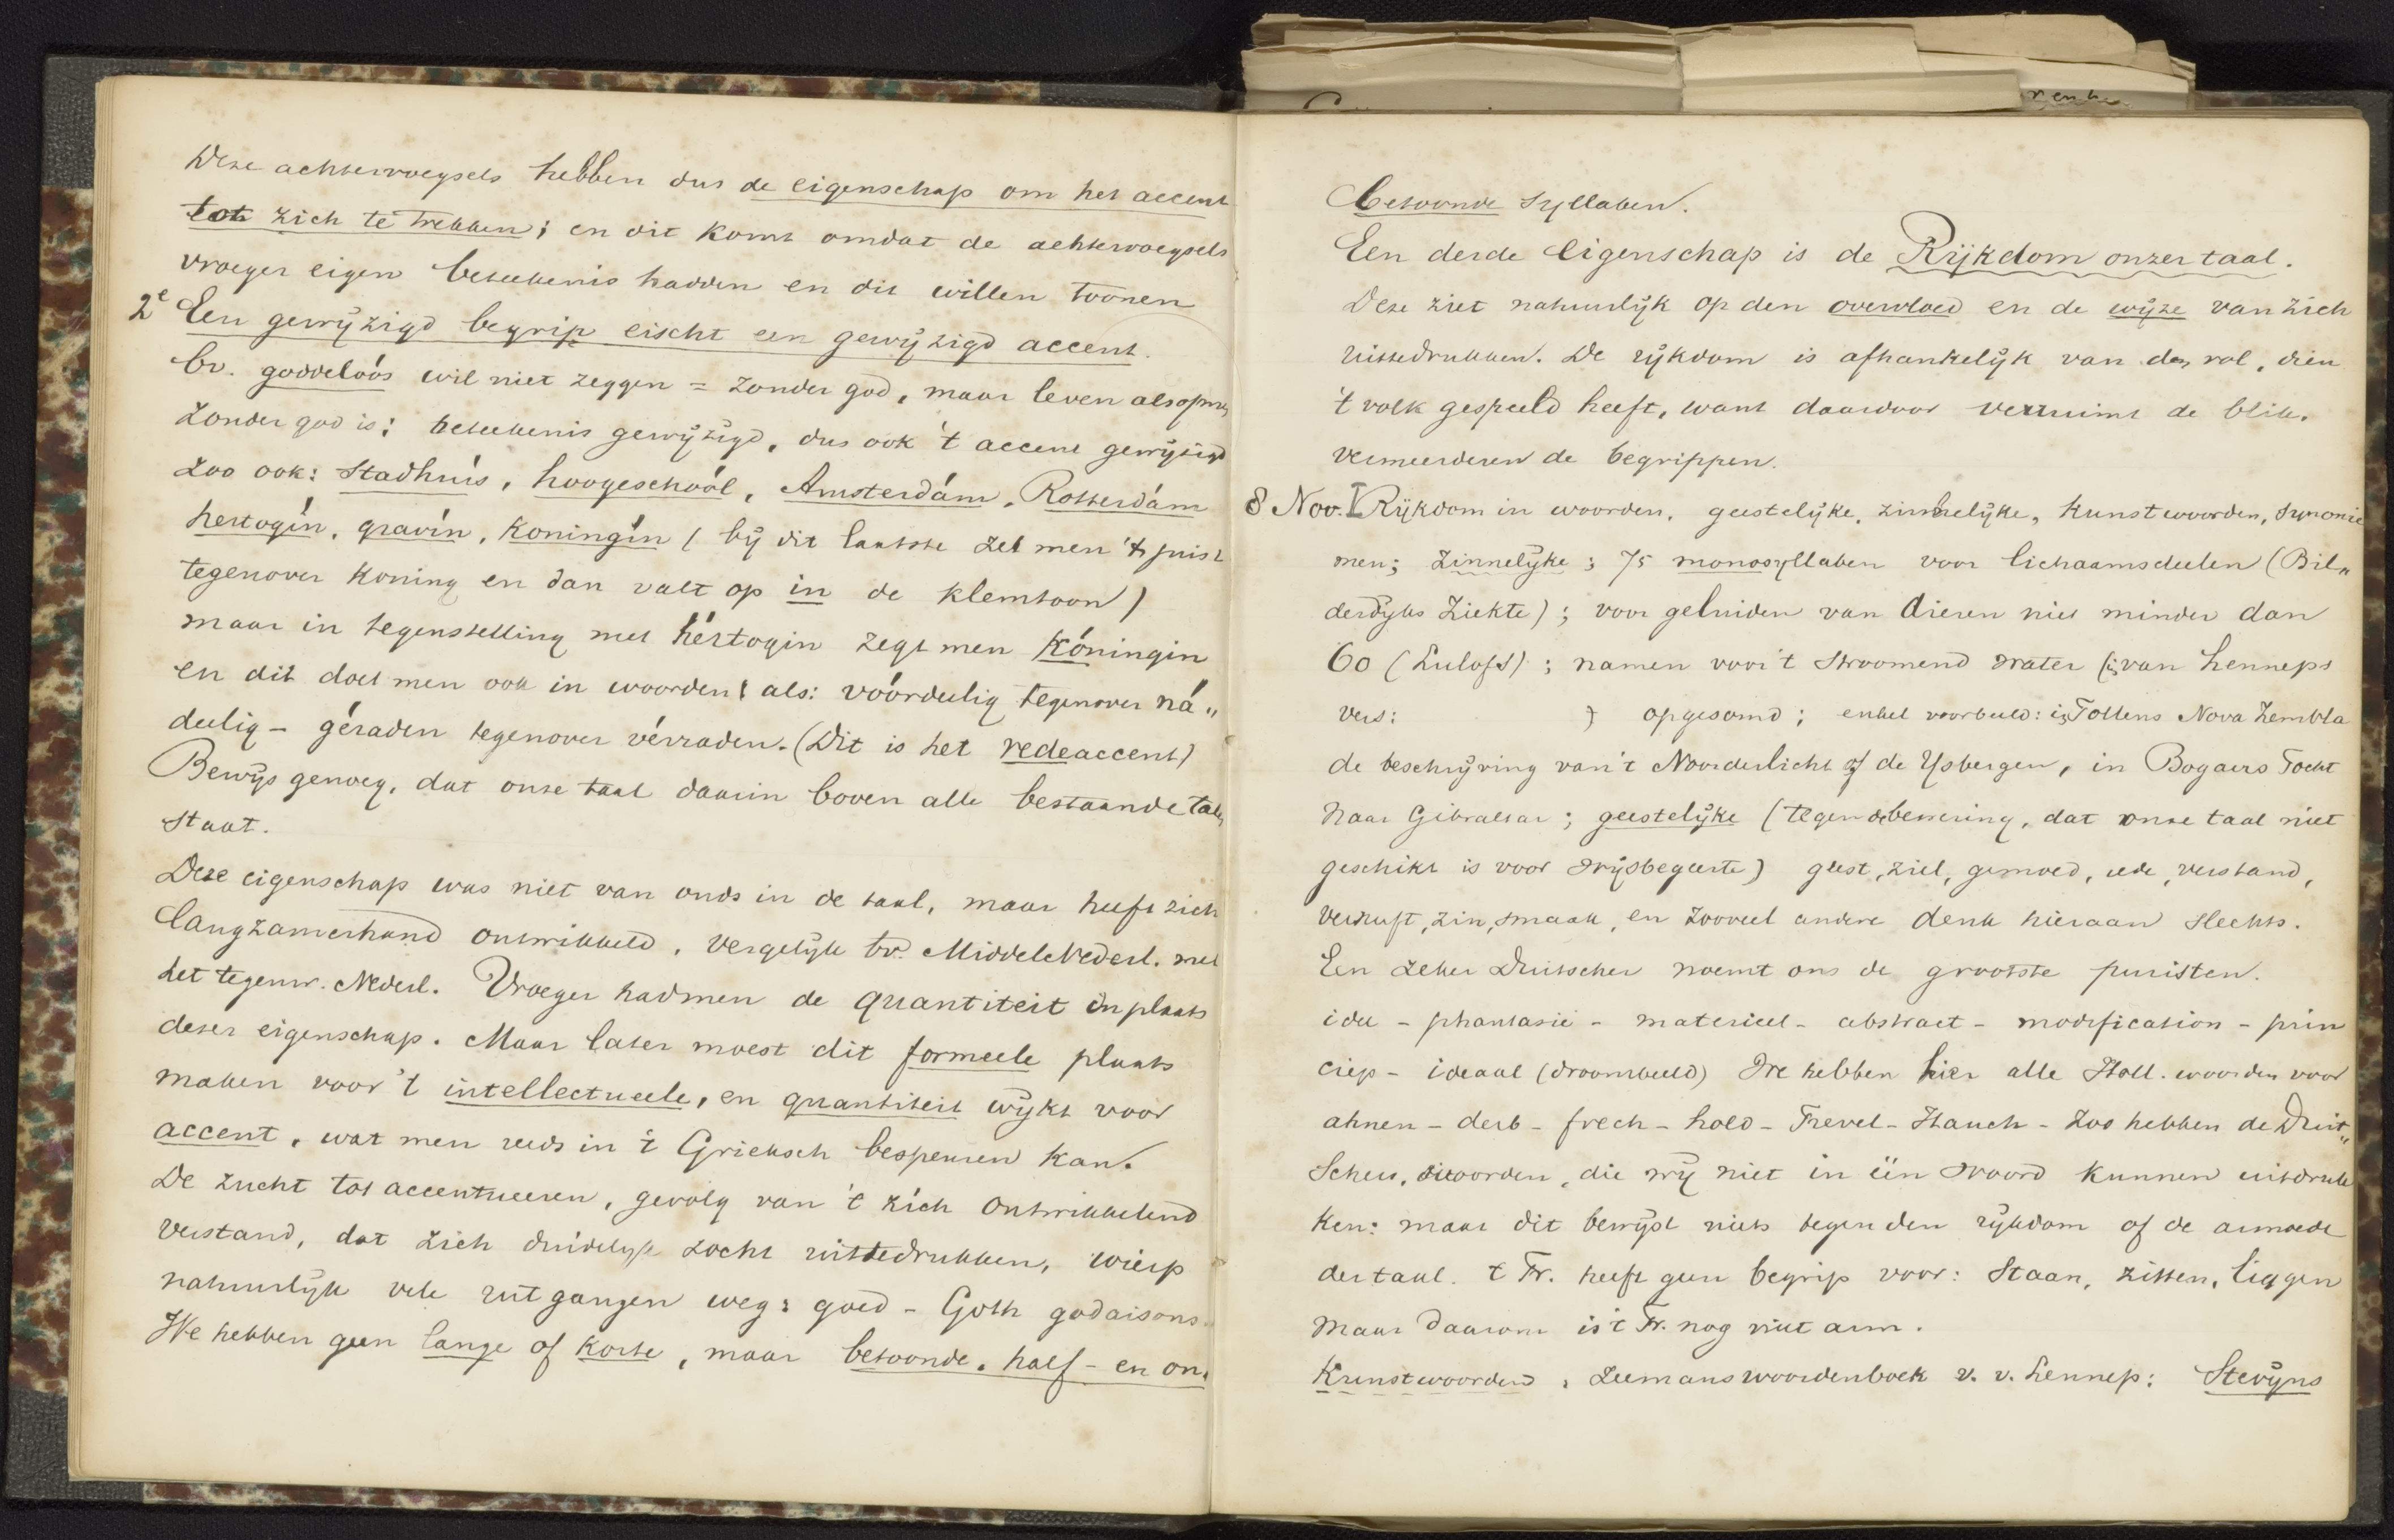 Deze achtervoegsels hebben dus de eigenschap om het accent
tot zich te trekken; en dit komt omdat de achtervoegsels
vroeger eigen beteekenis hadden en dit willen toonen
2e Een gewijzigd begrip eischt een gewijzigd accent.
bv. goddelóós wil niet zeggen = zonder god, maar leven alsof er
zonder god is: beteekenis gewijzigd, dus ook 't accent gewijzigd
zoo ook: Stadhúis, hoogeschóól, Amsterdám, Rotterdám
hertogín, gravín, koningín (bij dit laatste zet men 't juist
tegenover koning en dan valt op in de klemtoon)
maar in tegenstelling met hértogin zegt men kóningin
en dit doet men ook in woorden als: vóórdeelig tegenover ná„
deelig – géraden tegenover vérraden. (Dit is het redeaccent)
Bewijs genoeg, dat onze taal daarin boven alle bestaande talen
staat.
Deze eigenschap was niet van ouds in de taal, maar heeft zich
langzamerhand ontwikkeld. Vergelijk bv. MiddelNederl. met
het tegenw. Nederl. Vroeger had men de quantiteit in plaats
dezer eigenschap. Maar later moest dit formeele plaats
maken voor 't intellectueele, en quantiteit wijkt voor
accent, wat men reeds in 't Grieksch bespeuren kan.
De zucht tot accentueeren, gevolg van 't zich ontwikkelend
verstand, dat zich duidelijk zocht uittedrukken, wierp
natuurlijk vele uitgangen weg: goed – Goth godaisons.
We hebben geen lange of korte, maar betoonde, half- en on„
betoonde syllaben.
Een derde Eigenschap is de Rijkdom onzer taal.
Deze ziet natuurlijk op den overvloed en de wijze van zich
uittedrukken. De rijkdom is afhankelijk van den rol, dien
't volk gespeeld heeft, want daardoor verruimt de blik,
vermeerderen de begrippen.
8 Nov. I Rijkdom in woorden, geestelijke, zinnelijke, kunstwoorden, synonie
men; zinnelijke; 75 monosyllaben voor lichaamsdeelen (Bil„
derdijks Ziekte); voor geluiden van dieren niet minder dan
60 (Lulofs); namen voor 't stroomend water (in van Lenneps
vers: ) opgesomd; enkel voorbeeld: in Tollens Nova Zembla
de beschrijving van 't Noorderlicht of de IJsbergen, in Bogaers Tocht
naar Gibraltar; geestelijke (tegen de bewering, dat onze taal niet
geschikt is voor wijsbegeerte) geest, ziel, gemoed, rede, verstand,
vernuft, zin, smaak, en zooveel andere denk hieraan slechts.
Een zeker Duitscher noemt ons de grootste puristen.
idee – phantasie – materieel – abstract – modification – prin
ciep – ideaal (droombeeld) We hebben hier alle Holl. woorden voor
ahnen – derb – frech – hold – Frevel – Hauch – Zoo hebben de Duit„
schers, woorden, die wij niet in één woord kunnen uitdruk
ken: maar dit bewijst niets tegen den rijkdom of de armoede
der taal. 't Fr. heeft geen begrip voor: staan, zitten, liggen
maar daarom is 't Fr. nog niet arm.
Kunstwoorden, Zeemanswoordenboek v. v. Lennep: Stevijns